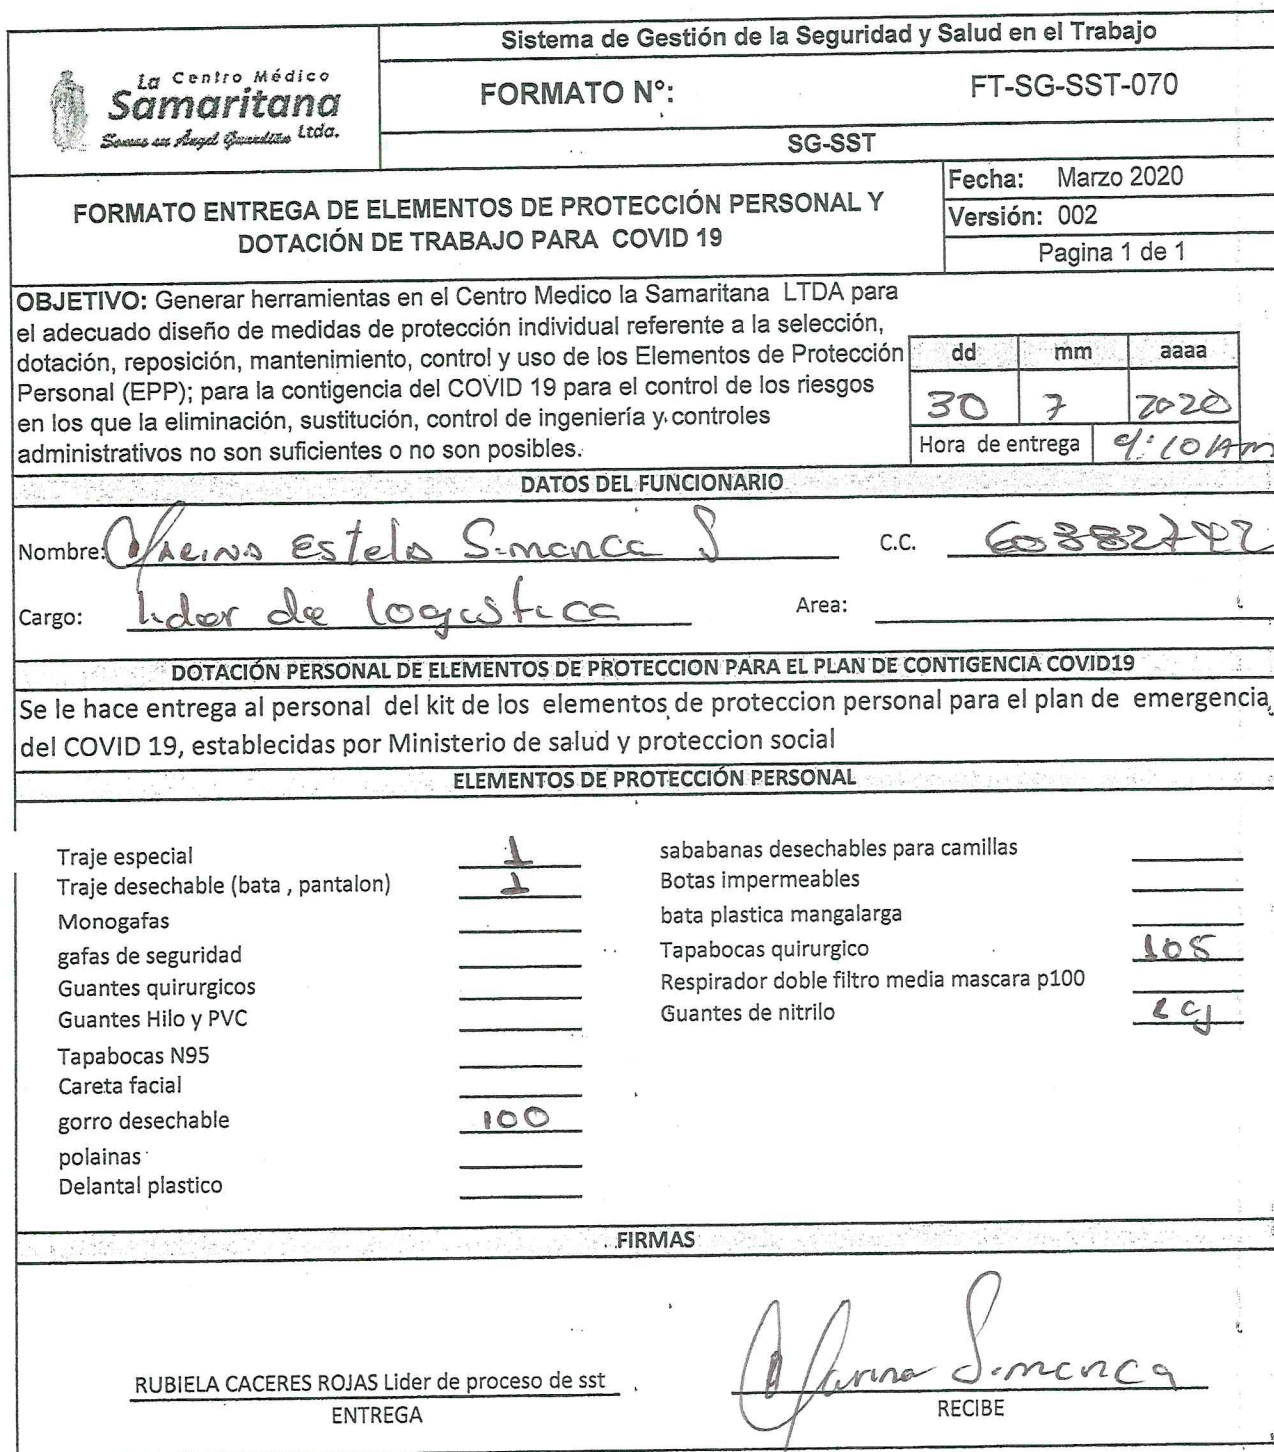 La Centro Médico
Samaritana
Somos su Ángel Guardián Ltda.
Sistema de Gestión de la Seguridad y Salud en el Trabajo
FORMATO N°: FT-SG-SST-070
SG-SST
FORMATO ENTREGA DE ELEMENTOS DE PROTECCIÓN PERSONAL Y
DOTACIÓN DE TRABAJO PARA COVID 19
Fecha: Marzo 2020
Versión: 002
Pagina 1 de 1
OBJETIVO: Generar herramientas en el Centro Medico la Samaritana LTDA para
el adecuado diseño de medidas de protección individual referente a la selección,
dotación, reposición, mantenimiento, control y uso de los Elementos de Protección
Personal (EPP); para la contigencia del COVID 19 para el control de los riesgos
en los que la eliminación, sustitución, control de ingeniería y controles
administrativos no son suficientes o no son posibles.
dd mm aaaa
30 7 2020
Hora de entrega 9:10 Am
DATOS DEL FUNCIONARIO
Nombre: Marina Estela Simanca S C.C.
Cargo: lider de logistica Area:
DOTACIÓN PERSONAL DE ELEMENTOS DE PROTECCION PARA EL PLAN DE CONTIGENCIA COVID19
Se le hace entrega al personal del kit de los elementos de proteccion personal para el plan de emergencia
del COVID 19, establecidas por Ministerio de salud y proteccion social
ELEMENTOS DE PROTECCIÓN PERSONAL
Traje especial 1
Traje desechable (bata , pantalon) 1
Monogafas
gafas de seguridad
Guantes quirurgicos
Guantes Hilo y PVC
Tapabocas N95
Careta facial
gorro desechable 100
polainas
Delantal plastico
sababanas desechables para camillas
Botas impermeables
bata plastica mangalarga
Tapabocas quirurgico 105
Respirador doble filtro media mascara p100
Guantes de nitrilo cj
FIRMAS
RUBIELA CACERES ROJAS Lider de proceso de sst
ENTREGA
Marina Simanca
RECIBE